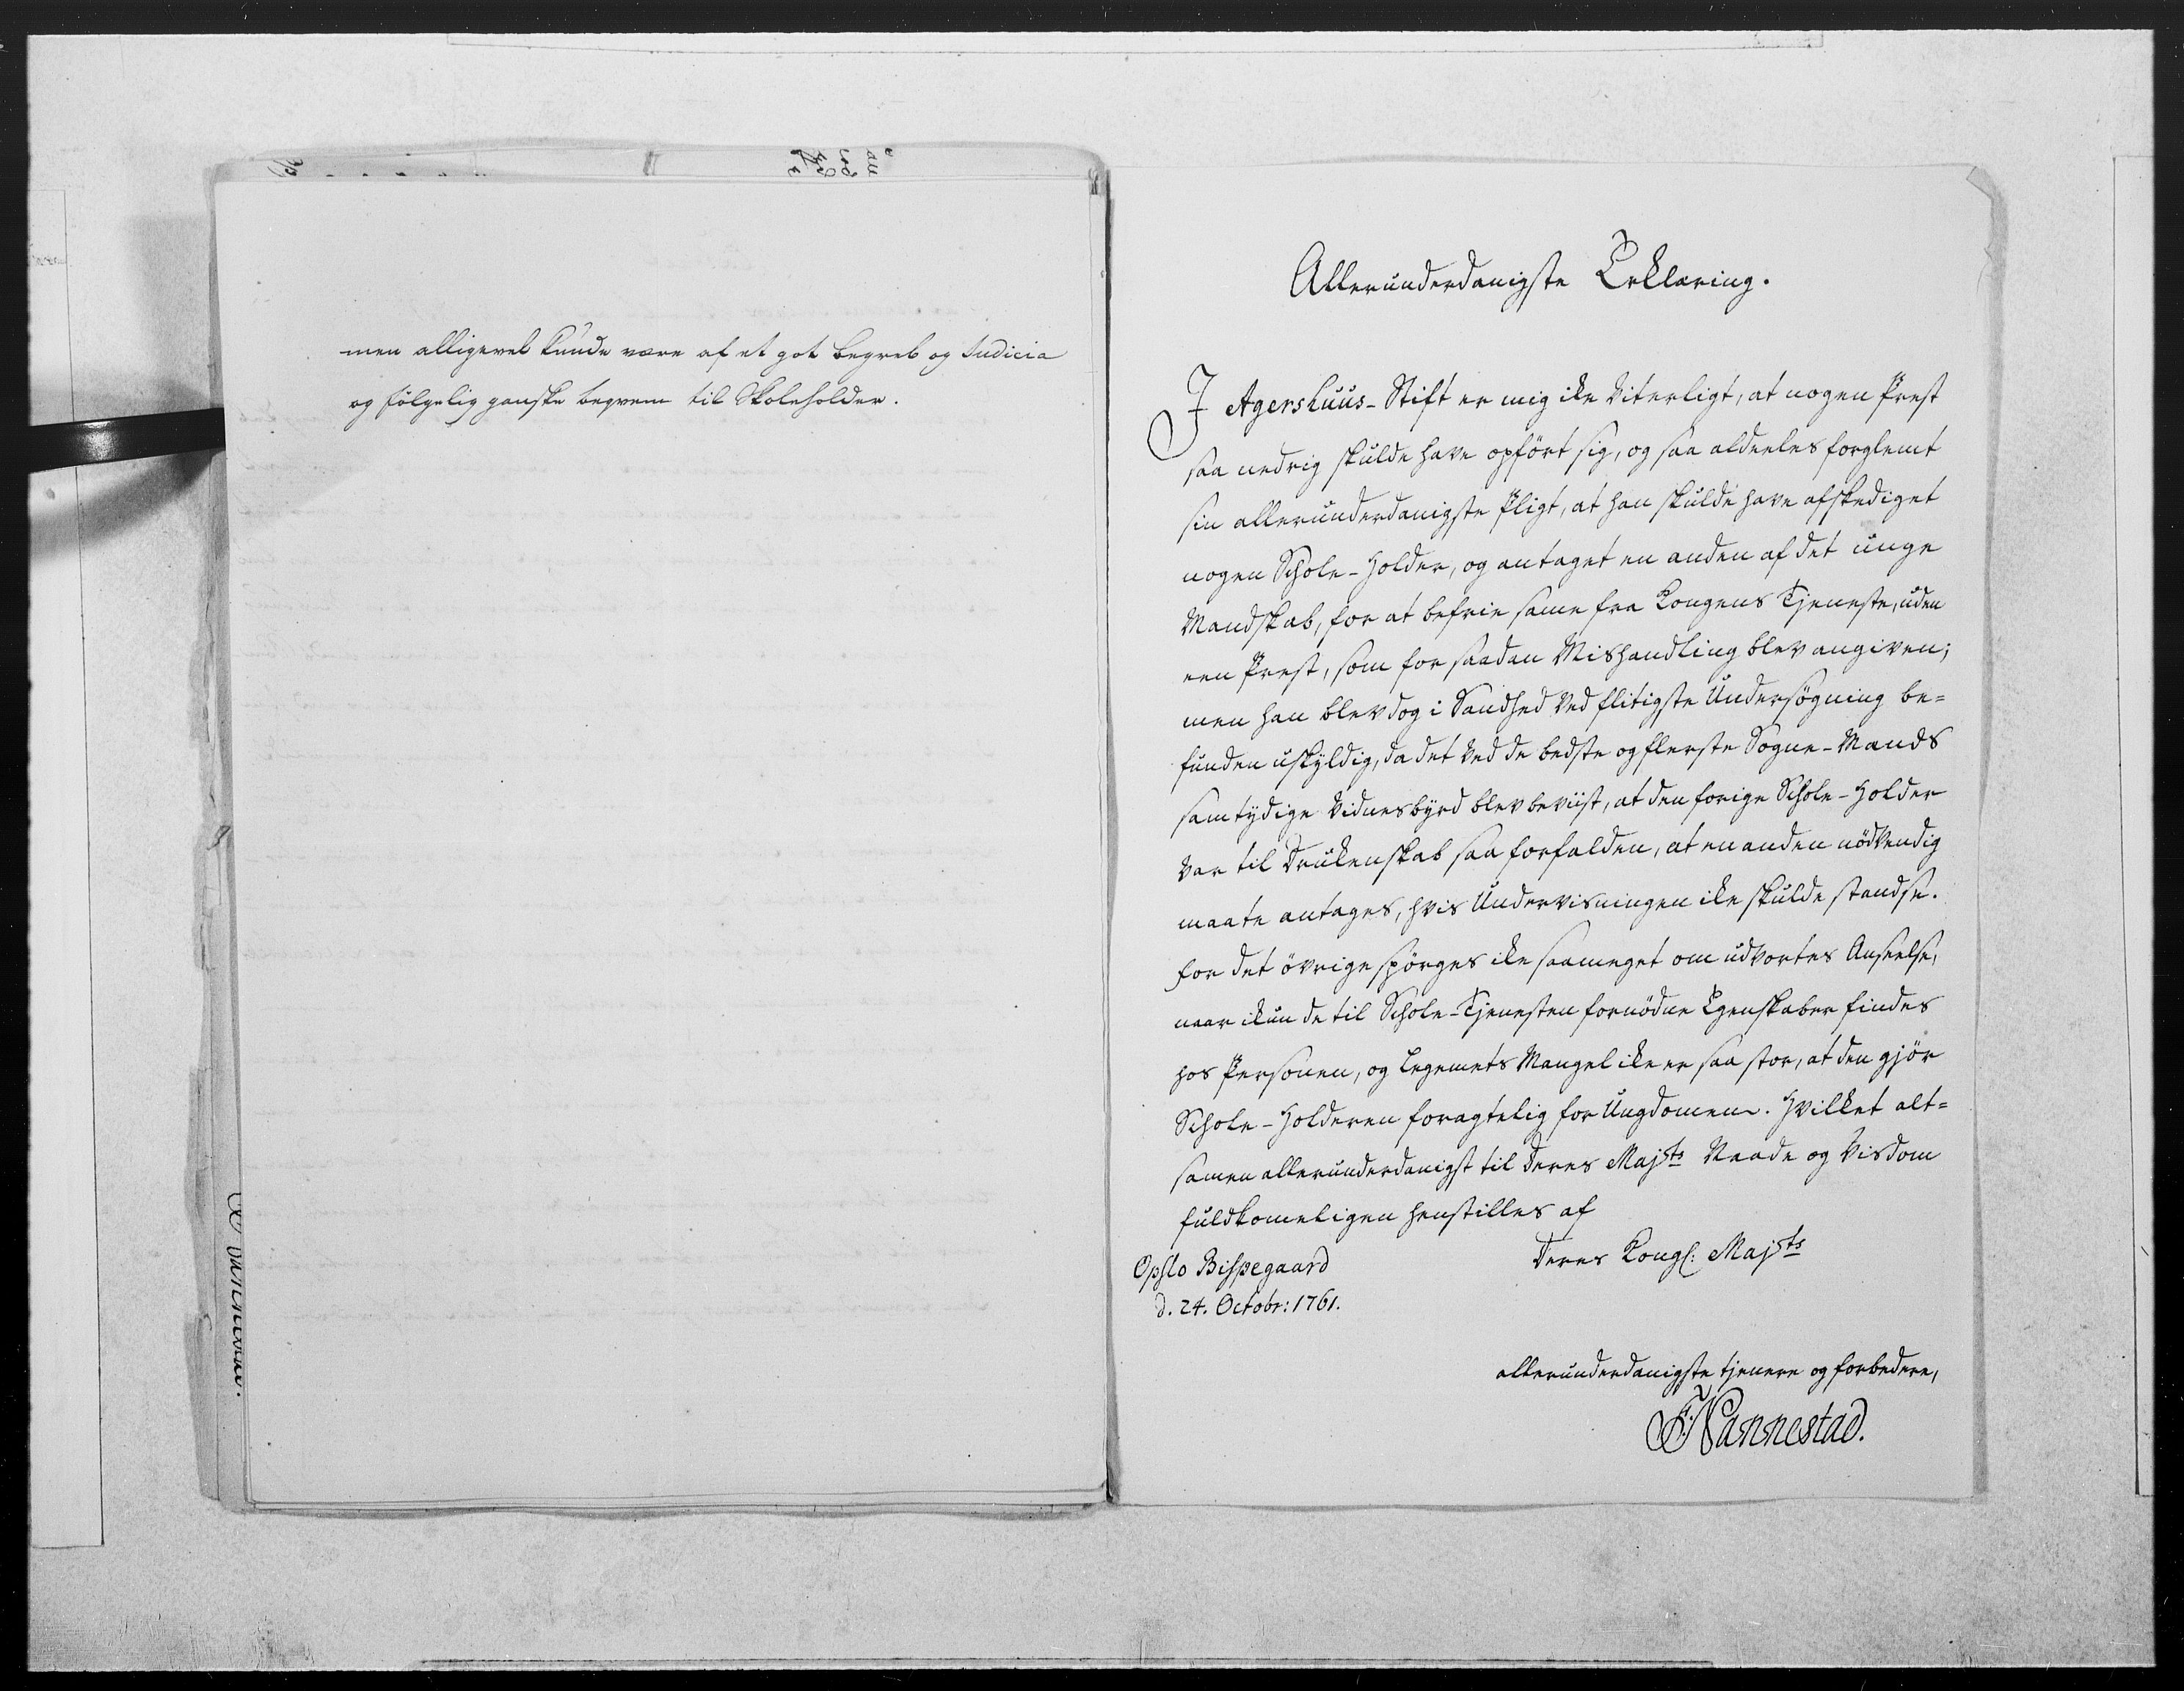 men alligevel kunde være af et got begreb og Judicia
og følgelig ganske beqvem til Skoleholder.
Allerunderdanigste Erklæring.
I Agershuus-Stift er mig ike viterligt, at nogen Prest
saa nedrig skulde have opført sig, og saa aldeeles forglemt
sin allerunderdanigste Pligt, at han skulde have afskediget
nogen Schole-Holder, og antaget en anden af det unge
Mandskab, for at befrie same fra Kongens Tjeneste, uden
een Prest, som for saadan Mishandling blev angiven;
men han blev dog i Sandhed ved flitigste Undersøgning be=
funden uskyldig, da det ved de bedste og fleeste Sogne-Mænds
samtydige Vidnesbyrd blev beviist, at den forige Schole-Holder
var til Drukenskab saa forfalden, at en anden nødvendig
maate antages, hvis Undervisningen ike skulde standse.
for det øvrige spørges ike saameget om udvortes Anseelse,
naar ikun de til Schole-Tjenesten fornødne Egenskaber findes
hos Personen, og Legemets Mangel ike er saa stor, at den gjør
Schole-Holderen foragtelig for Ungdomen. Hvilket alt=
samen allerunderdanigst til Deres Majsts Naade og Visdom
fuldkomeligen henstilles af
Deres Kongl: Majsts
Opslo Bispegaard
d. 24. Octobr: 1761.
allerunderdanigste tjenere og forbedere,
F. Nannestad.